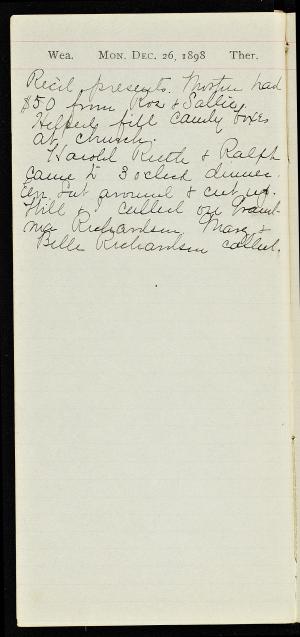 Wea. MON. DEC. 26, 1898 Ther.
Rec'd presents. Mother had
$50 from Ros & Sallie.
Helped fill candy boxes
at church.
Harold Ruth & Ralph
came to 3 o'clock dinner.
sat around & cut up.
Will & I called on Grand-
ma Richardson. Mary &
Belle Richardson called.